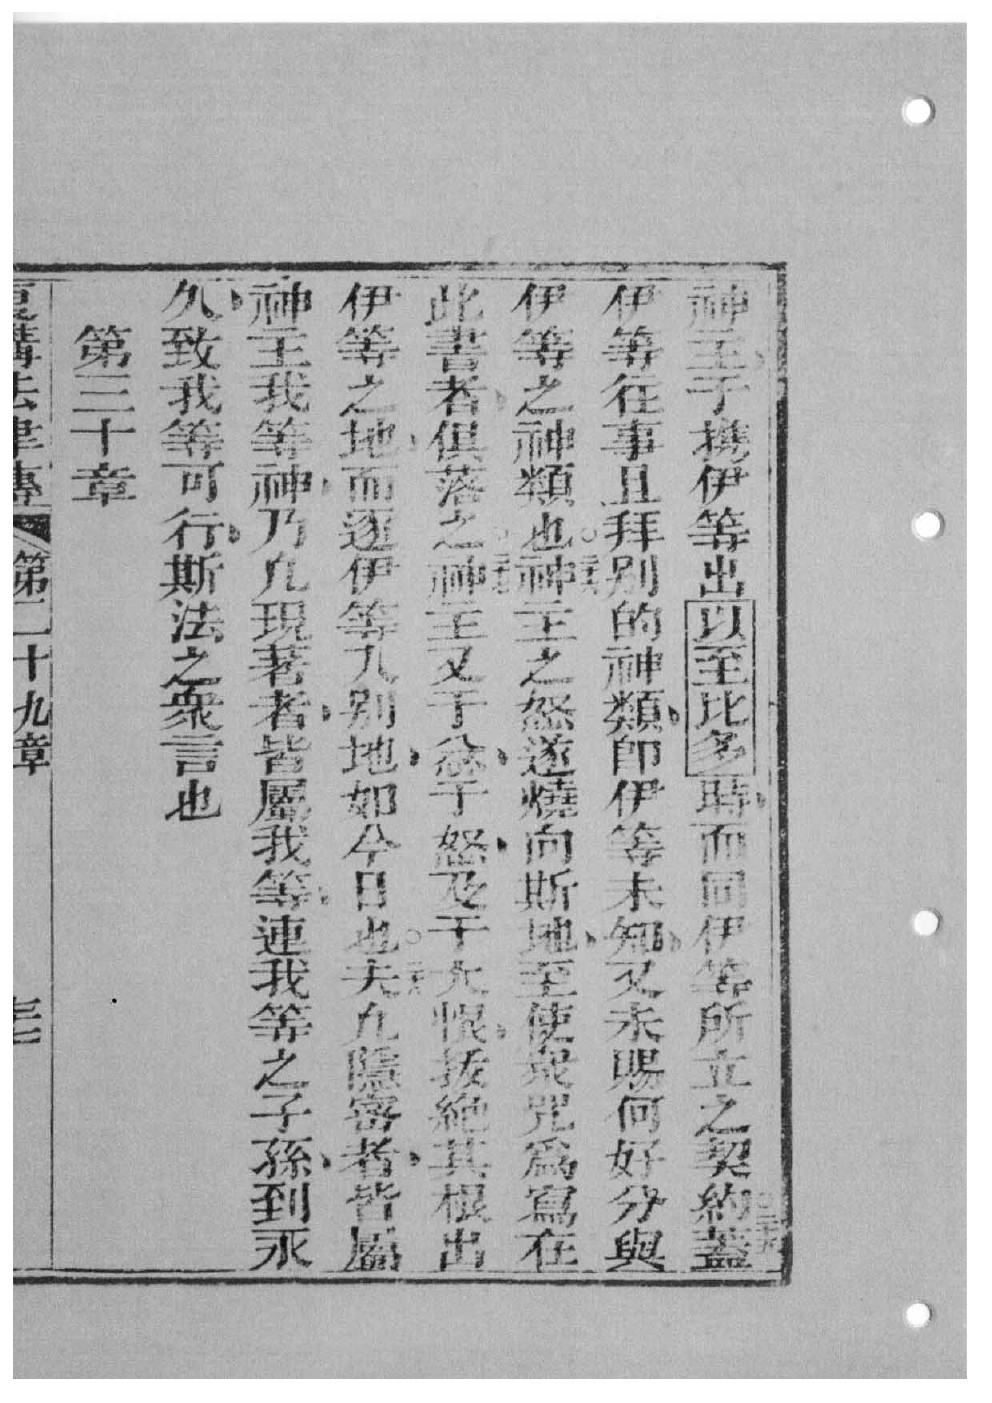 神主于攜伊等出以至比多時而同伊等所立之契約蓋
二十六
伊等往事且拜別的神類卽伊等未知又未賜何好分與
伊等之神類也神主之怒遂燒向斯地至使衆咒爲寫在
二十七
此書者俱落之神主又于忿于怒及于大恨拔絶其根出
二十八
伊等之地而逐伊等入別地如今日也夫凢隱密者皆屬
二十九
神主我等神乃凢現著者皆屬我等連我等之子孫到永
久致我等可行斯法之衆言也
第三十章
復講法律傳 第二十九章